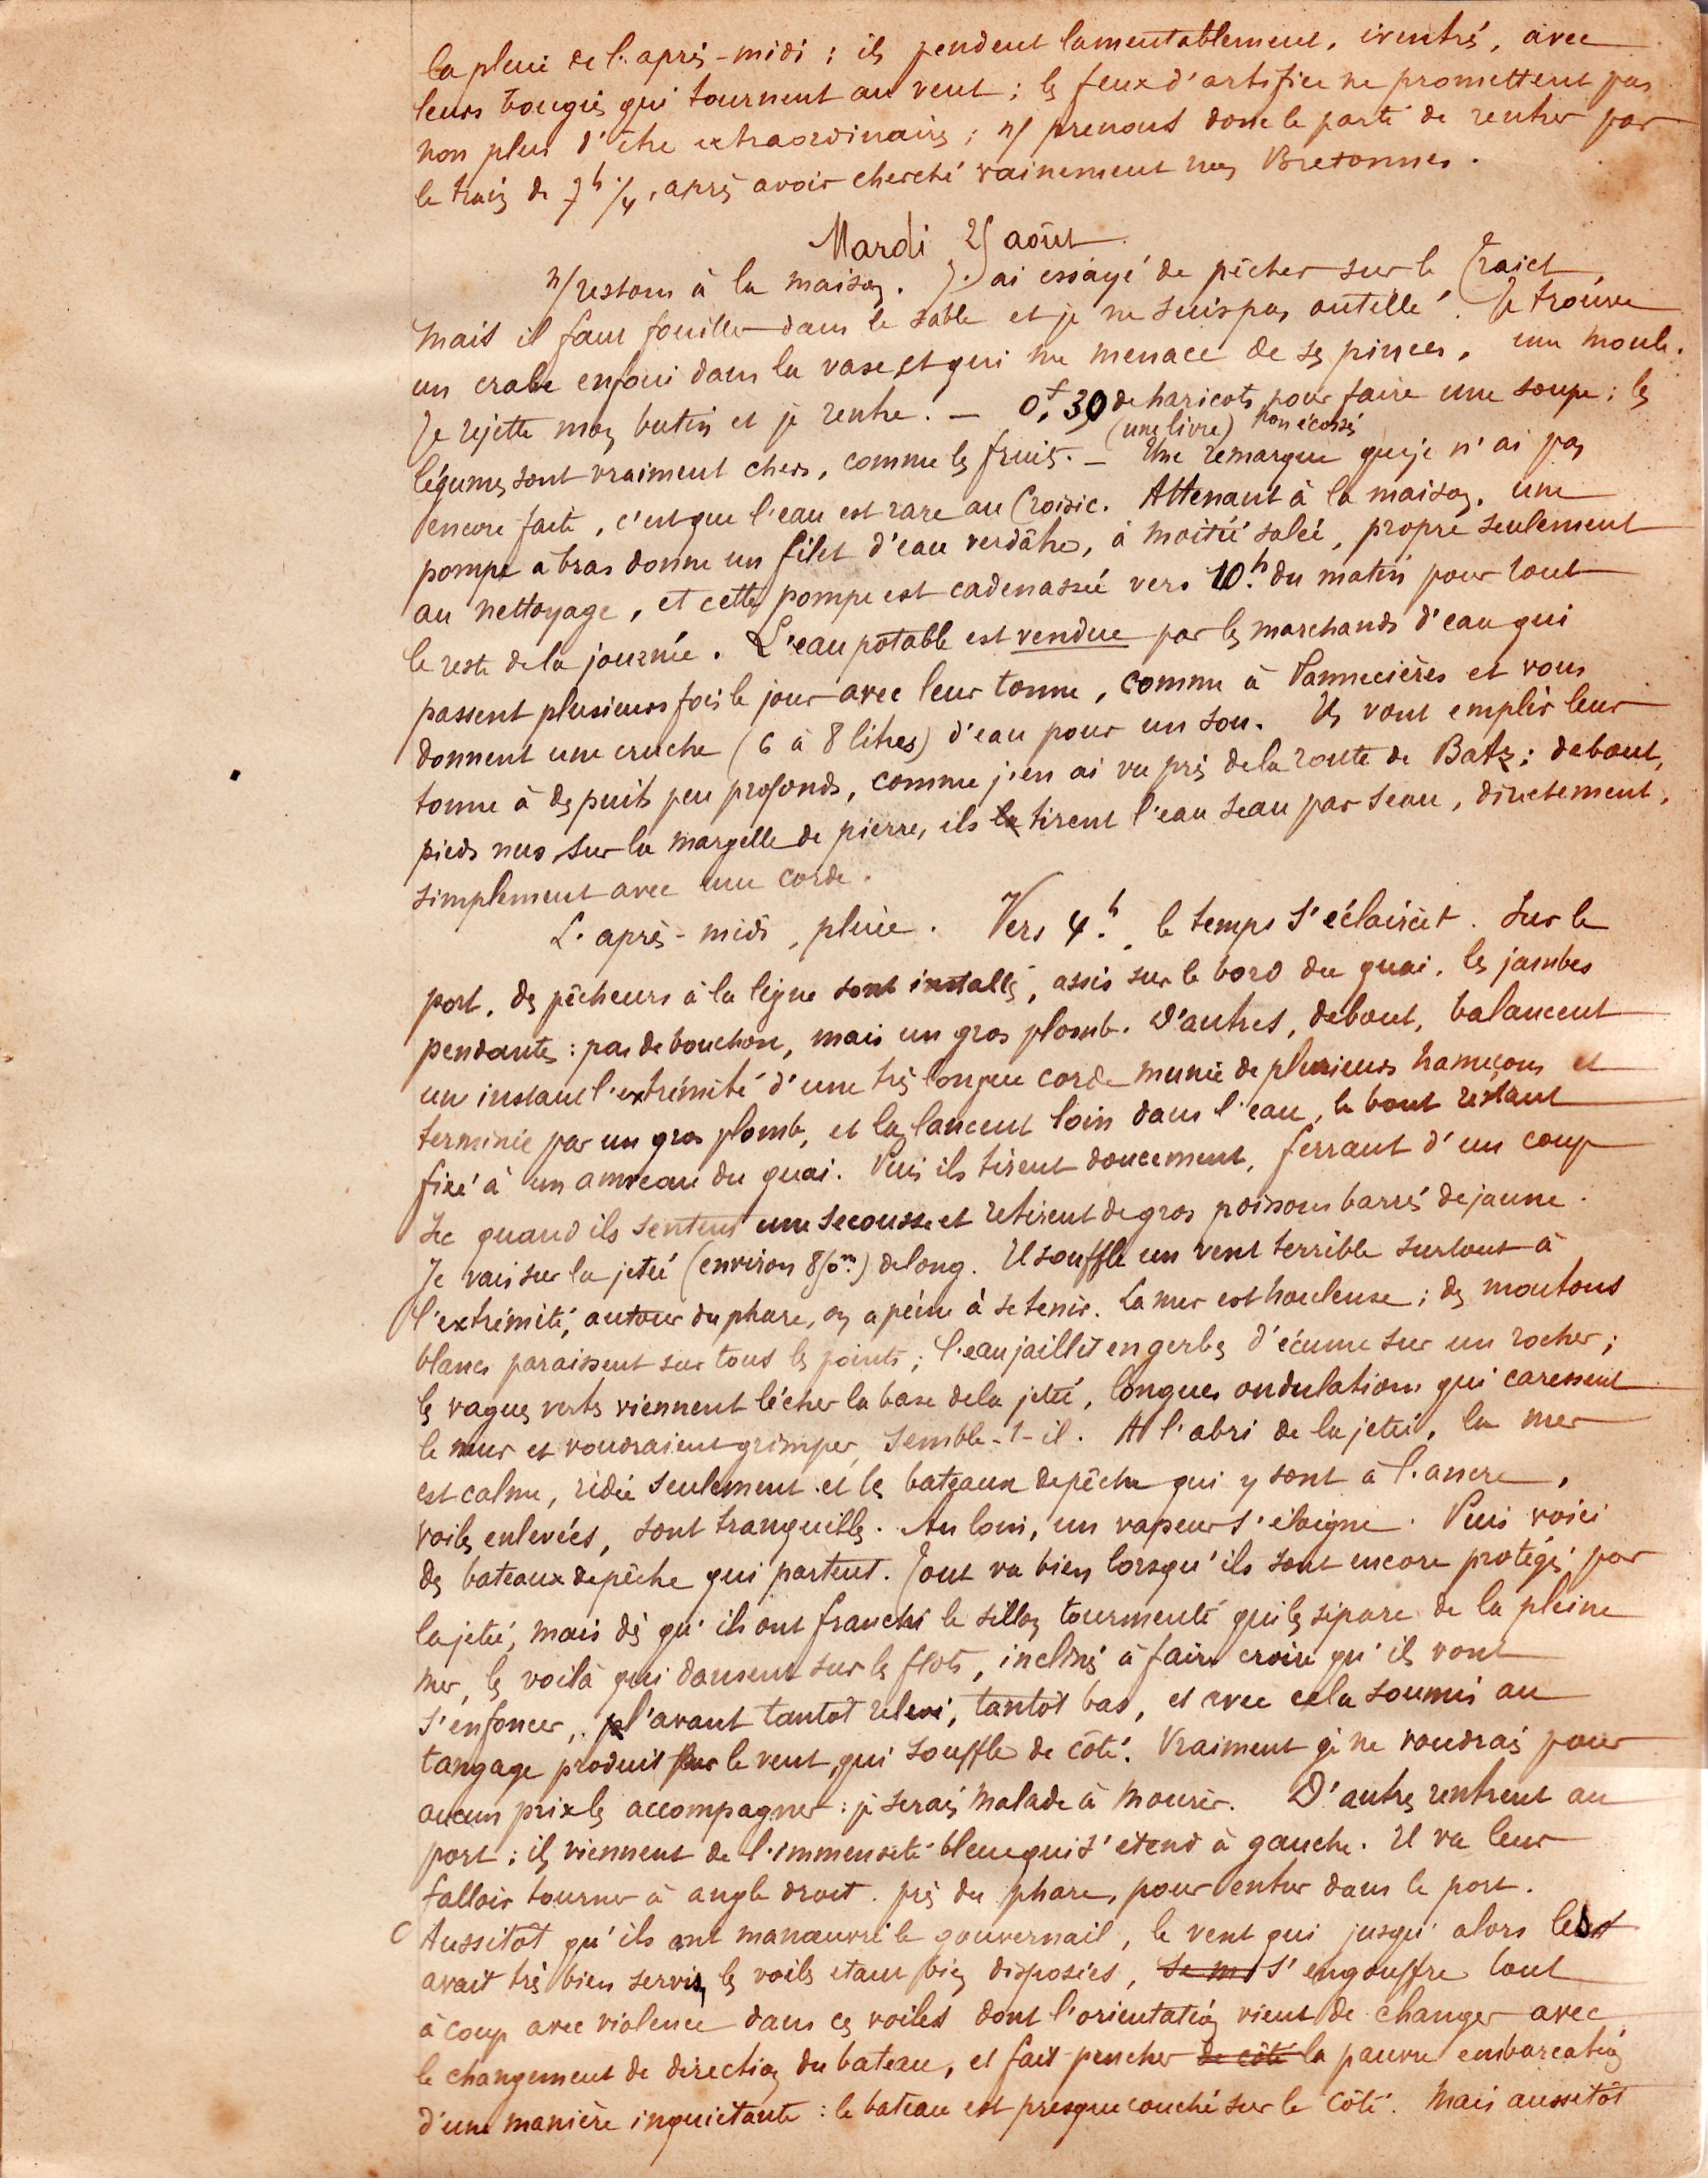 la pluie de l'après-midi : ils pendent lamentablement, éventrés, avec
leurs bougies qui tournent au vent ; les feux d'artifice ne promettent pas
non plus d'être extraordinaires ; n/ prenons donc le parti de rentrer par
le train de 7h 1/4, après avoir cherché vainement nos Bretonnes.
Mardi 25 août
n/ restons à la maison. J'ai essayé de pêcher sur le Traict,
mais il faut fouiller dans le sable et je ne suis pas outillé. Je trouve
un crabe enfoui dans la vase et qui me menace de ses pinces, une moule.
Je rejette mon butin et je rentre. — 0f,30 de haricots pour faire une soupe ; les
(une livre) non écossés
légumes sont vraiment chers, comme les fruits. — Une remarque que je n'ai pas
encore faite, c'est que l'eau est rare au Croisic. Attenant à la maison, une
pompe à bras donne un filet d'eau verdâtre, à moitié salée, propre seulement
au nettoyage, et cette pompe est cadenassée vers 10h du matin pour tout
le reste de la journée. L'eau potable est vendue par les marchands d'eau qui
passent plusieurs fois le jour avec leur tonne, comme à Pannecières et vous
donnent une cruche (6 à 8 litres) d'eau pour un sou. Ils vont emplir leur
tonne à des puits peu profonds, comme j'en ai vu près de la route de Batz ; debout,
pieds nus sur la margelle de pierre, ils la tirent l'eau seau par seau, directement,
simplement avec une corde.
L'après-midi, pluie. Vers 4h, le temps s'éclaircit. Sur le
port, des pêcheurs à la ligne sont installés, assis sur le bord du quai, les jambes
pendantes : pas de bouchon, mais un gros plomb. D'autres, debout, balancent
un instant l'extrémité d'une très longue corde munie de plusieurs hameçons et
terminée par un gros plomb, et la lancent loin dans l'eau, le bout restant
fixé à un anneau du quai. Puis ils tirent doucement, ferrant d'un coup
sec quand ils sentent une secousse et retirent de gros poissons barrés de jaune.
Je vais sur la jetée (environ 850m) de long. Il souffle un vent terrible surtout à
l'extrémité, autour du phare, on a peine à se tenir. La mer est houleuse ; des moutons
blancs paraissent sur tous les points ; l'eau jaillit en gerbes d'écume sur un rocher ;
les vagues vertes viennent lécher la base de la jetée, longues ondulations qui caressent
le mur et voudraient grimper, semble-t-il. A l'abri de la jetée, la mer
est calme, ridée seulement et les bateaux de pêche qui y sont à l'ancre,
voiles enlevées, sont tranquilles. Au loin, un vapeur s'éloigne. Puis voici
des bateaux de pêche qui partent. Tout va bien lorsqu'ils sont encore protégés par
la jetée, mais dès qu'ils ont franchi le sillon tourmenté qui les sépare de la pleine
mer, les voilà qui dansent sur les flots, inclinés à faire croire qu'ils vont
s'enfoncer, l'avant tantôt relevé, tantôt bas, et avec cela soumis au
tangage produit par le vent, qui souffle de côté. Vraiment je ne voudrais pour
aucun prix les accompagner : je serais malade à mourir. D'autres rentrent au
port ; ils viennent de l'immensité bleue qui s'étend à gauche. Il va leur
falloir tourner à angle droit près du phare, pour entrer dans le port.
Aussitôt qu'ils ont manoeuvré le gouvernail, le vent qui jusqu'alors les
avait très bien servis, les voiles étant bien disposées, se m s'engouffre tout
à coup avec violence dans ces voiles dont l'orientation vient de changer avec
le changement de direction du bateau, et fait pencher de côté la pauvre embarcation
d'une manière inquiétante : le bateau est presque couché sur le côté. Mais aussitôt